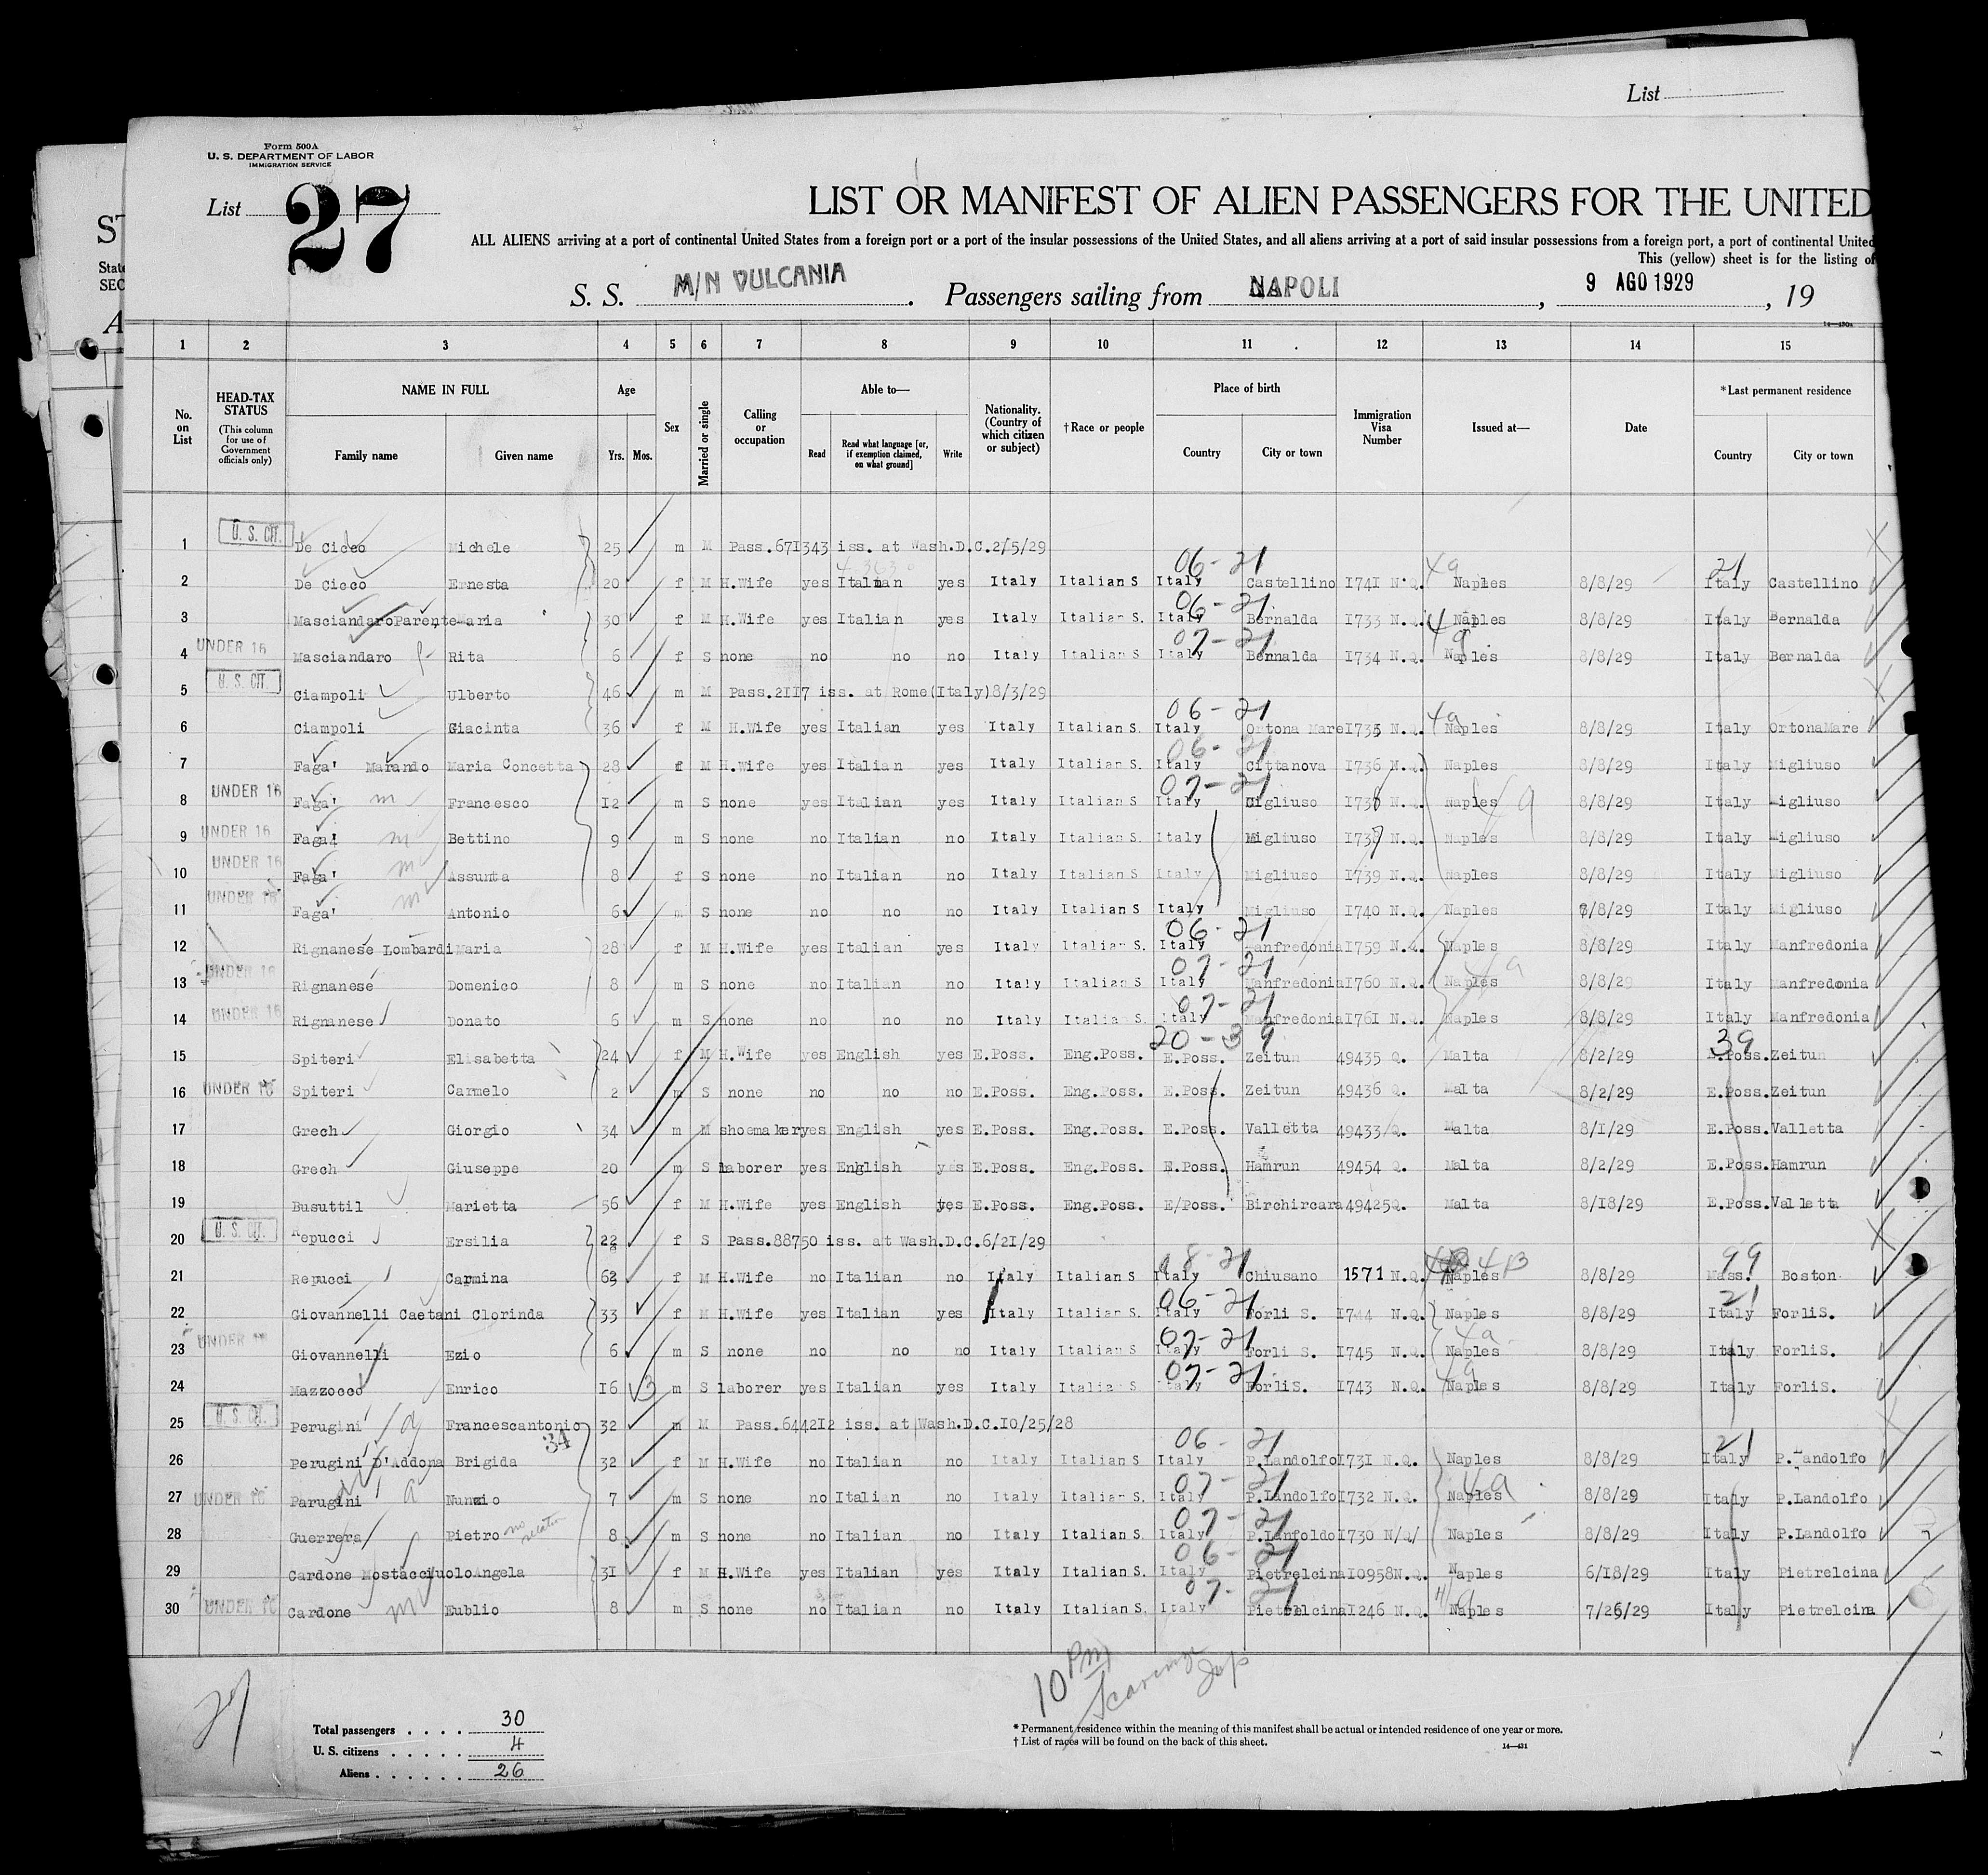 List
Form 500A
U. S. DEPARTMENT OF LABOR
IMMIGRATION SERVICE
List 27
LIST OR MANIFEST OF ALIEN PASSENGERS FOR THE UNITED
ALL ALIENS arriving at a port of continental United States from a foreign port or a port of the insular possessions of the United States, and all aliens arriving at a port of said insular possessions from a foreign port, a port of continental United
This (yellow) sheet is for the listing of
S. S. M/N VULCANIA . Passengers sailing from NAPOLI , 9 AGO 1929 , 19
1 2 3 4 5 6 7 8 9 10 11 12 13 14 15
No. on List
HEAD-TAX STATUS (This column for use of Government officials only)
NAME IN FULL Family name Given name
Age Yrs. Mos.
Sex
Married or single
Calling or occupation
Able to— Read Read what language [or, if exemption claimed, on what ground] Write
Nationality. (Country of which citizen or subject)
†Race or people
Place of birth Country City or town
Immigration Visa Number
Issued at—
Date
*Last permanent residence Country City or town
1 U. S. CIT. De Cicco Michele 25 m M Pass.671343 iss. at Wash.D.C.2/5/29
2 De Cicco Ernesta 20 f M H.Wife yes Italian yes Italy Italian S Italy 06-21 Castellino 1741 N.Q. Naples 8/8/29 Italy 21 Castellino
3 Masciandaro Parente Maria 30 f M H.Wife yes Italian yes Italy Italian S. Italy 06-21 Bernalda 1733 N.Q. Naples 8/8/29 Italy Bernalda
4 UNDER 16 Masciandaro Rita 6 f S none no no no Italy Italian S Italy 07-21 Bernalda 1734 N.Q. Naples 8/8/29 Italy Bernalda
5 U. S. CIT. Ciampoli Ulberto 46 m M Pass.2117 iss. at Rome(Italy)8/3/29
6 Ciampoli Giacinta 36 f M H.Wife yes Italian yes Italy Italian S. Italy 06-21 Ortona Mare 1735 N.Q. Naples 8/8/29 Italy OrtonaMare
7 Faga' Marando Maria Concetta 28 f M H.Wife yes Italian yes Italy Italian S. Italy 06-21 Cittanova 1736 N.Q. Naples 8/8/29 Italy Migliuso
8 UNDER 16 Faga' m Francesco 12 m S none yes Italian yes Italy Italian S Italy 07-21 Migliuso N.Q. Naples 8/8/29 Italy Migliuso
9 UNDER 16 Faga' m Bettino 9 m S none no Italian no Italy Italian S. Italy Migliuso N.Q. Naples 8/8/29 Italy Migliuso
10 UNDER 16 Faga' m Assunta 8 f S none no Italian no Italy Italian S Italy Migliuso 1739 N.Q. Naples 8/8/29 Italy Migliuso
11 UNDER 16 Faga' m Antonio 6 m S none no no no Italy Italian S Italy Migliuso 1740 N.Q. Naples 8/8/29 Italy Migliuso
12 Rignanese Lombardi Maria 28 f M H.Wife yes Italian yes Italy Italian S. Italy 06-21 Manfredonia 1759 N.Q. Naples 8/8/29 Italy Manfredonia
13 UNDER 16 Rignanese Domenico 8 m S none no Italian no Italy Italian S Italy 07-21 Manfredonia 1760 N.Q. Naples 8/8/29 Italy Manfredonia
14 UNDER 16 Rignanese Donato 6 m S none no no no Italy Italian S. Italy 07-21 Manfredonia 1761 N.Q. Naples 8/8/29 Italy Manfredonia
15 Spiteri Elisabetta 24 f M H.Wife yes English yes E.Poss. Eng.Poss. E.Poss. 20-39 Zeitun 49435 Q. Malta 8/2/29 E.Poss. 39 Zeitun
16 UNDER 16 Spiteri Carmelo 2 m S none no no no E.Poss. Eng.Poss. E.Poss. Zeitun 49436 Q. Malta 8/2/29 E.Poss. Zeitun
17 Grech Giorgio 34 m M shoemaker yes English yes E.Poss. Eng.Poss. E.Poss. Valletta 49433 Q. Malta 8/1/29 E.Poss. Valletta
18 Grech Giuseppe 20 m S laborer yes English yes E.Poss. Eng.Poss. E.Poss. Hamrun 49454 Q. Malta 8/2/29 E.Poss. Hamrun
19 Busuttil Marietta 56 f M H.Wife yes English yes E.Poss. Eng.Poss. E/Poss. Birchircara 49425Q. Malta 8/18/29 E.Poss. Valletta
20 U. S. CIT. Repucci Ersilia 22 f S Pass.88750 iss. at Wash.D.C.6/21/29
21 Repucci Carmina 62 f M H.Wife no Italian no Italy Italian S Italy 08-21 Chiusano 1571 N.Q. Naples 8/8/29 Mass. 99 Boston
22 Giovannelli Caetani Clorinda 33 f M H.Wife yes Italian yes Italy Italian S. Italy 06-21 Forli S. 1744 N.Q. Naples 8/8/29 Italy 21 ForliS.
23 UNDER 16 Giovannelli Ezio 6 m S none no no no Italy Italian S Italy 07-21 Forli S. 1745 N.Q. Naples 8/8/29 Italy ForliS.
24 Mazzocco Enrico 16 3 m S laborer yes Italian yes Italy Italian S Italy 07-21 ForliS. 1743 N.Q. Naples 8/8/29 Italy ForliS.
25 U. S. CIT. Perugini Francescantonio 32 m M Pass.644212 iss. at Wash.D.C.10/25/28
34
26 Perugini D'Addona Brigida 32 f M H.Wife no Italian no Italy Italian S Italy 06-21 P.Landolfo 1731 N.Q. Naples 8/8/29 Italy 21 P.Landolfo
27 UNDER 16 Parugini Nunzio 7 m S none no Italian no Italy Italian S. Italy 07-21 P.Landolfo 1732 N.Q. Naples 8/8/29 Italy P.Landolfo
28 Guerrera Pietro no 8 m S none no Italian no Italy Italian S. Italy 07-21 P.Lanfoldo 1730 N/Q/ Naples 8/8/29 Italy P.Landolfo
29 Cardone Mostacciuolo Angela 31 f M H.Wife yes Italian yes Italy Italian S. Italy 06-21 Pietrelcina 10958N.Q. Naples 6/18/29 Italy Pietrelcina
30 UNDER 16 Cardone m Eublio 8 m S none no Italian no Italy Italian S. Italy 07-21 Pietrelcina 1246 N.Q. Naples 7/26/29 Italy Pietrelcina
10 PM
Total passengers . . . . 30
U. S. citizens . . . . . 4
Aliens . . . . . . 26
* Permanent residence within the meaning of this manifest shall be actual or intended residence of one year or more.
† List of races will be found on the back of this sheet.
14—431